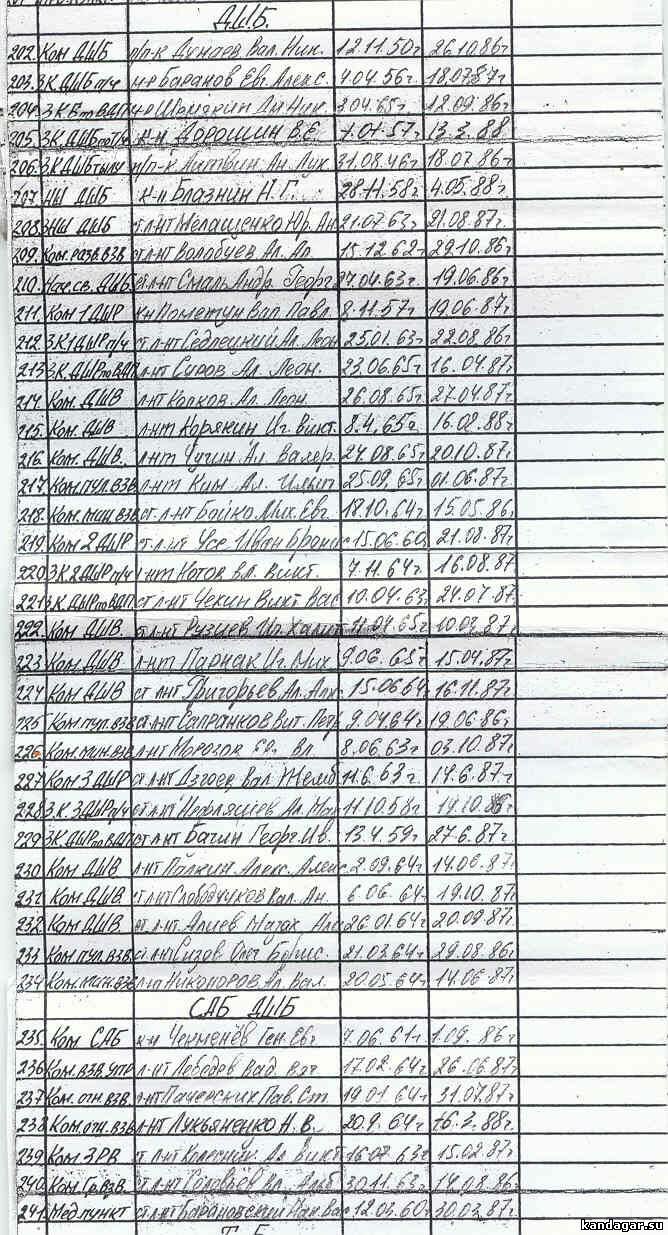 ДШБ.
202. Ком ДШБ п/п-к Дунаев Вал. Ник. 12.11.50г 26.10.86г
203. ЗК ДШБ п/ч м-р Баранов Евг. Алекс. 4.04.56г. 18.07.87г.
204. ЗКБ по ВДП 12.09.86г
205. ЗК ДШБ по Т/ч к-н Дорошин В.Е. 1.01.57г 13.3.88
206. ЗК ДШБ тылу п/п-к Литвин Ан. Лук. 31.08.46г 18.07.86г
207. НШ ДШБ к-н Блазнин Н.Г. 28.11.58г. 4.05.88г.
208. ЗНШ ДШБ ст.л-нт Мелащенко Юр. Ан. 21.07.63г. 21.08.87г.
209. Ком. разв. взв ст.л-нт Волобуев Ал. Ал. 15.12.62г 29.10.86г
210. Нач. св. ДШБ ст.л-нт Смаль Андр. Георг 27.04.63г. 19.06.86г
211. Ком 1 ДШР к-н Пометун Вл. Павл. 8.11.57г. 19.06.87г
212. ЗК 1 ДШР п/ч ст.л-нт Седлецкий Ал. Леон 25.01.63г 22.08.86г
213 ЗК. ДШР по ВДП л-нт Суров Ал. Леон. 23.06.65г 16.04.87г
214. Ком. ДШВ л-нт Копков Ал. Леон. 26.08.65г. 27.04.87г
215. Ком. ДШВ л-нт Корякин Иг. Викт. 8.4.65г 16.02.88г
216. Ком. ДШВ. л-нт Чугин Ал Валер. 24.08.65г 20.10.87г
217. Ком. пул. взв л-нт Ким Ал. Ильич 25.09.65г 01.06.87г.
218. Ком. мин. взв ст.л-нт Бойко Мих. Евг. 18.10.64г 15.05.86г
219. Ком 2 ДШР ст.л-нт Усс Иван 15.06.60г 21.08.87г
220. ЗК 2 ДШР п/ч л-нт Котов Вл. Викт. 7.11.64г 16.08.87
221. ЗК. ДШР по ВДП ст.л-нт Чекин Викт Вас 10.04.63г 24.07.87
222. Ком ДШВ. ст.л-нт Рузиев Иг. Халит 11.04.65г 10.02.87г
223. Ком. ДШВ л-нт Парнак Иг. Мих. 9.06.65г 15.04.87г
224 Ком. ДШВ ст л-нт Григорьев Ал. Алк. 15.06.64г 16.11.87г
225 Ком. пул. взв ст.л-нт Сапранков Вит. Петр 9.04.64г 19.06.86г
226. Ком. мин. взв л-нт Морозок Вл 8.06.63г 03.10.87г
227 Ком 3 ДШР ст.л-нт Дзгоев Вал. 11.6.63г. 14.6.87г
228 З.К. 3 ДШР п/ч ст.л-нт Ал. 11.10.58г 14.10.86г
229 ЗК ДШР по ВДП ст.л-нт Бачин Георг. Ив. 13.4.59г. 27.6.87г
230 Ком ДШВ л-нт Палкин Алекс. Алекс 2.09.64г 14.06.87г
231 Ком ДШВ ст.л-нт Слободчуков Вал. Ан. 6.06.64г 19.10.87г
232 Ком ДШВ ст.л-нт. Алиев 26.01.64г 20.09.87г
233 Ком пул. взв. ст.л-нт Сизов Олег Борис. 21.03.64г 29.08.86г
234 Ком. мин. взв л-нт Никоноров Ал. Вал. 20.05.64г 14.06.87г
САБ ДШБ
235. Ком САБ к-н Чекменёв Ген. Евг 7.06.61г 1.09.86г
236 Ком. взв упр л-нт Лебедев Вад. Вяч 17.02.64г 26.06.87г
237 Ком. огн. взв л-нт Пачерских Пав. Ст. 19.01.64г 31.07.87г
238 Ком. огн. взв л-нт Лукьяненко А.В. 20.9.64г 16.3.88г
239 Ком ЗРВ ст л-нт Колесник. Ал Викт 16.07.63г 15.02.87г
240 Ком. Гр. взв. ст.л-нт Соловьёв Вл. 30.11.63г 14.08.86г
241 Мед. пункт ст.л-нт Барановский 12.03.60г 30.03.87г
kandagar.su